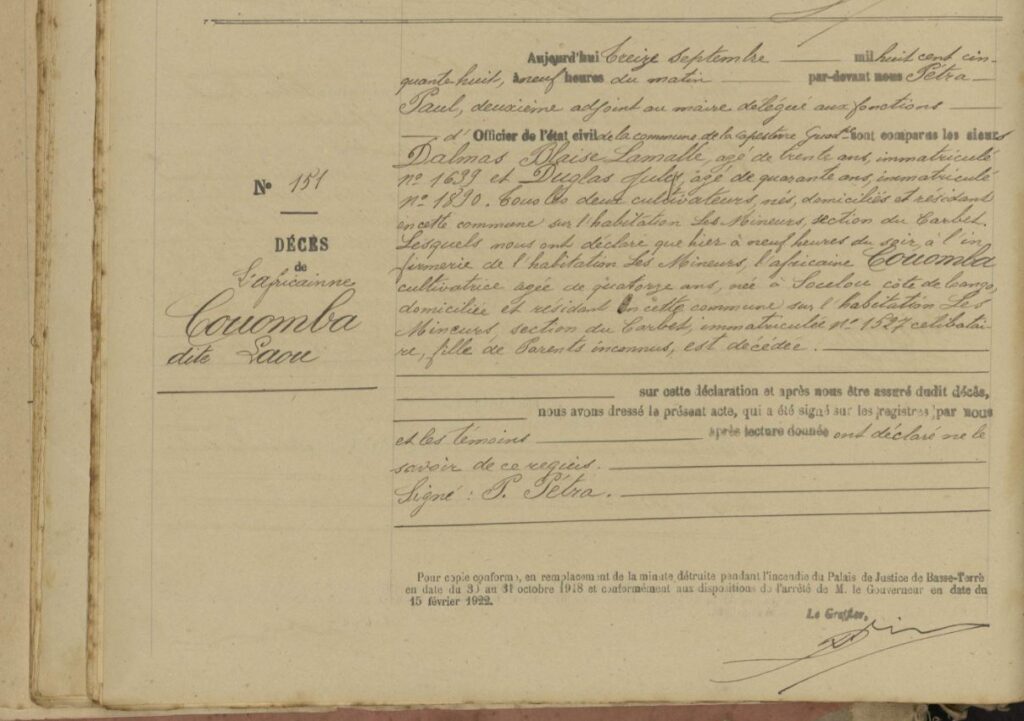 Aujourd'hui treize septembre mil huit cent cin-
quante huit, à neuf heures du matin par-devant nous Pétra
Paul, deuxième adjoint au maire délégué aux fonctions
d'Officier de l'état civil de la commune de la Capesterre Guad. sont comparus les sieurs
Dalmas Blaise Lamalle, agé de trente ans, immatriculé
nº 1639 et Duglas July, agé de quarante ans, immatriculé
nº 1890. Tous les deux cultivateurs, nés, domiciliés et résidant
en cette commune sur l'habitation Les Mineurs, section du Carbet.
Lesquels nous ont déclaré que hier à neuf heures du soir, à l'in
firmerie de l'habitation Les Mineurs, l'africaine Couomba
cultivatrice agée de quatorze ans, née à côte de loango,
domiciliée et résidant en cette commune sur l'habitation Les
Mineurs, section du Carbet, immatriculée nº 1527 celibatai
re, fille de Parents inconnus, est décédée.
Nº 151
DÉCÈS
de
L'africainne
Couomba
dite Laou
sur cette déclaration et après nous être assuré dudit décès,
nous avons dressé le présent acte, qui a été signé sur les registres par nous
et les témoins après lecture donnée ont déclaré ne le
savoir de ce requis.
Signé : P. Pétra.
Pour copie conforme, en remplacement de la minute détruite pendant l'incendie du Palais de Justice de Basse-Terre
en date du 30 au 31 octobre 1918 et conformément aux dispositions de l'arrêté de M. le Gouverneur en date du
15 février 1922.
Le Greffier,